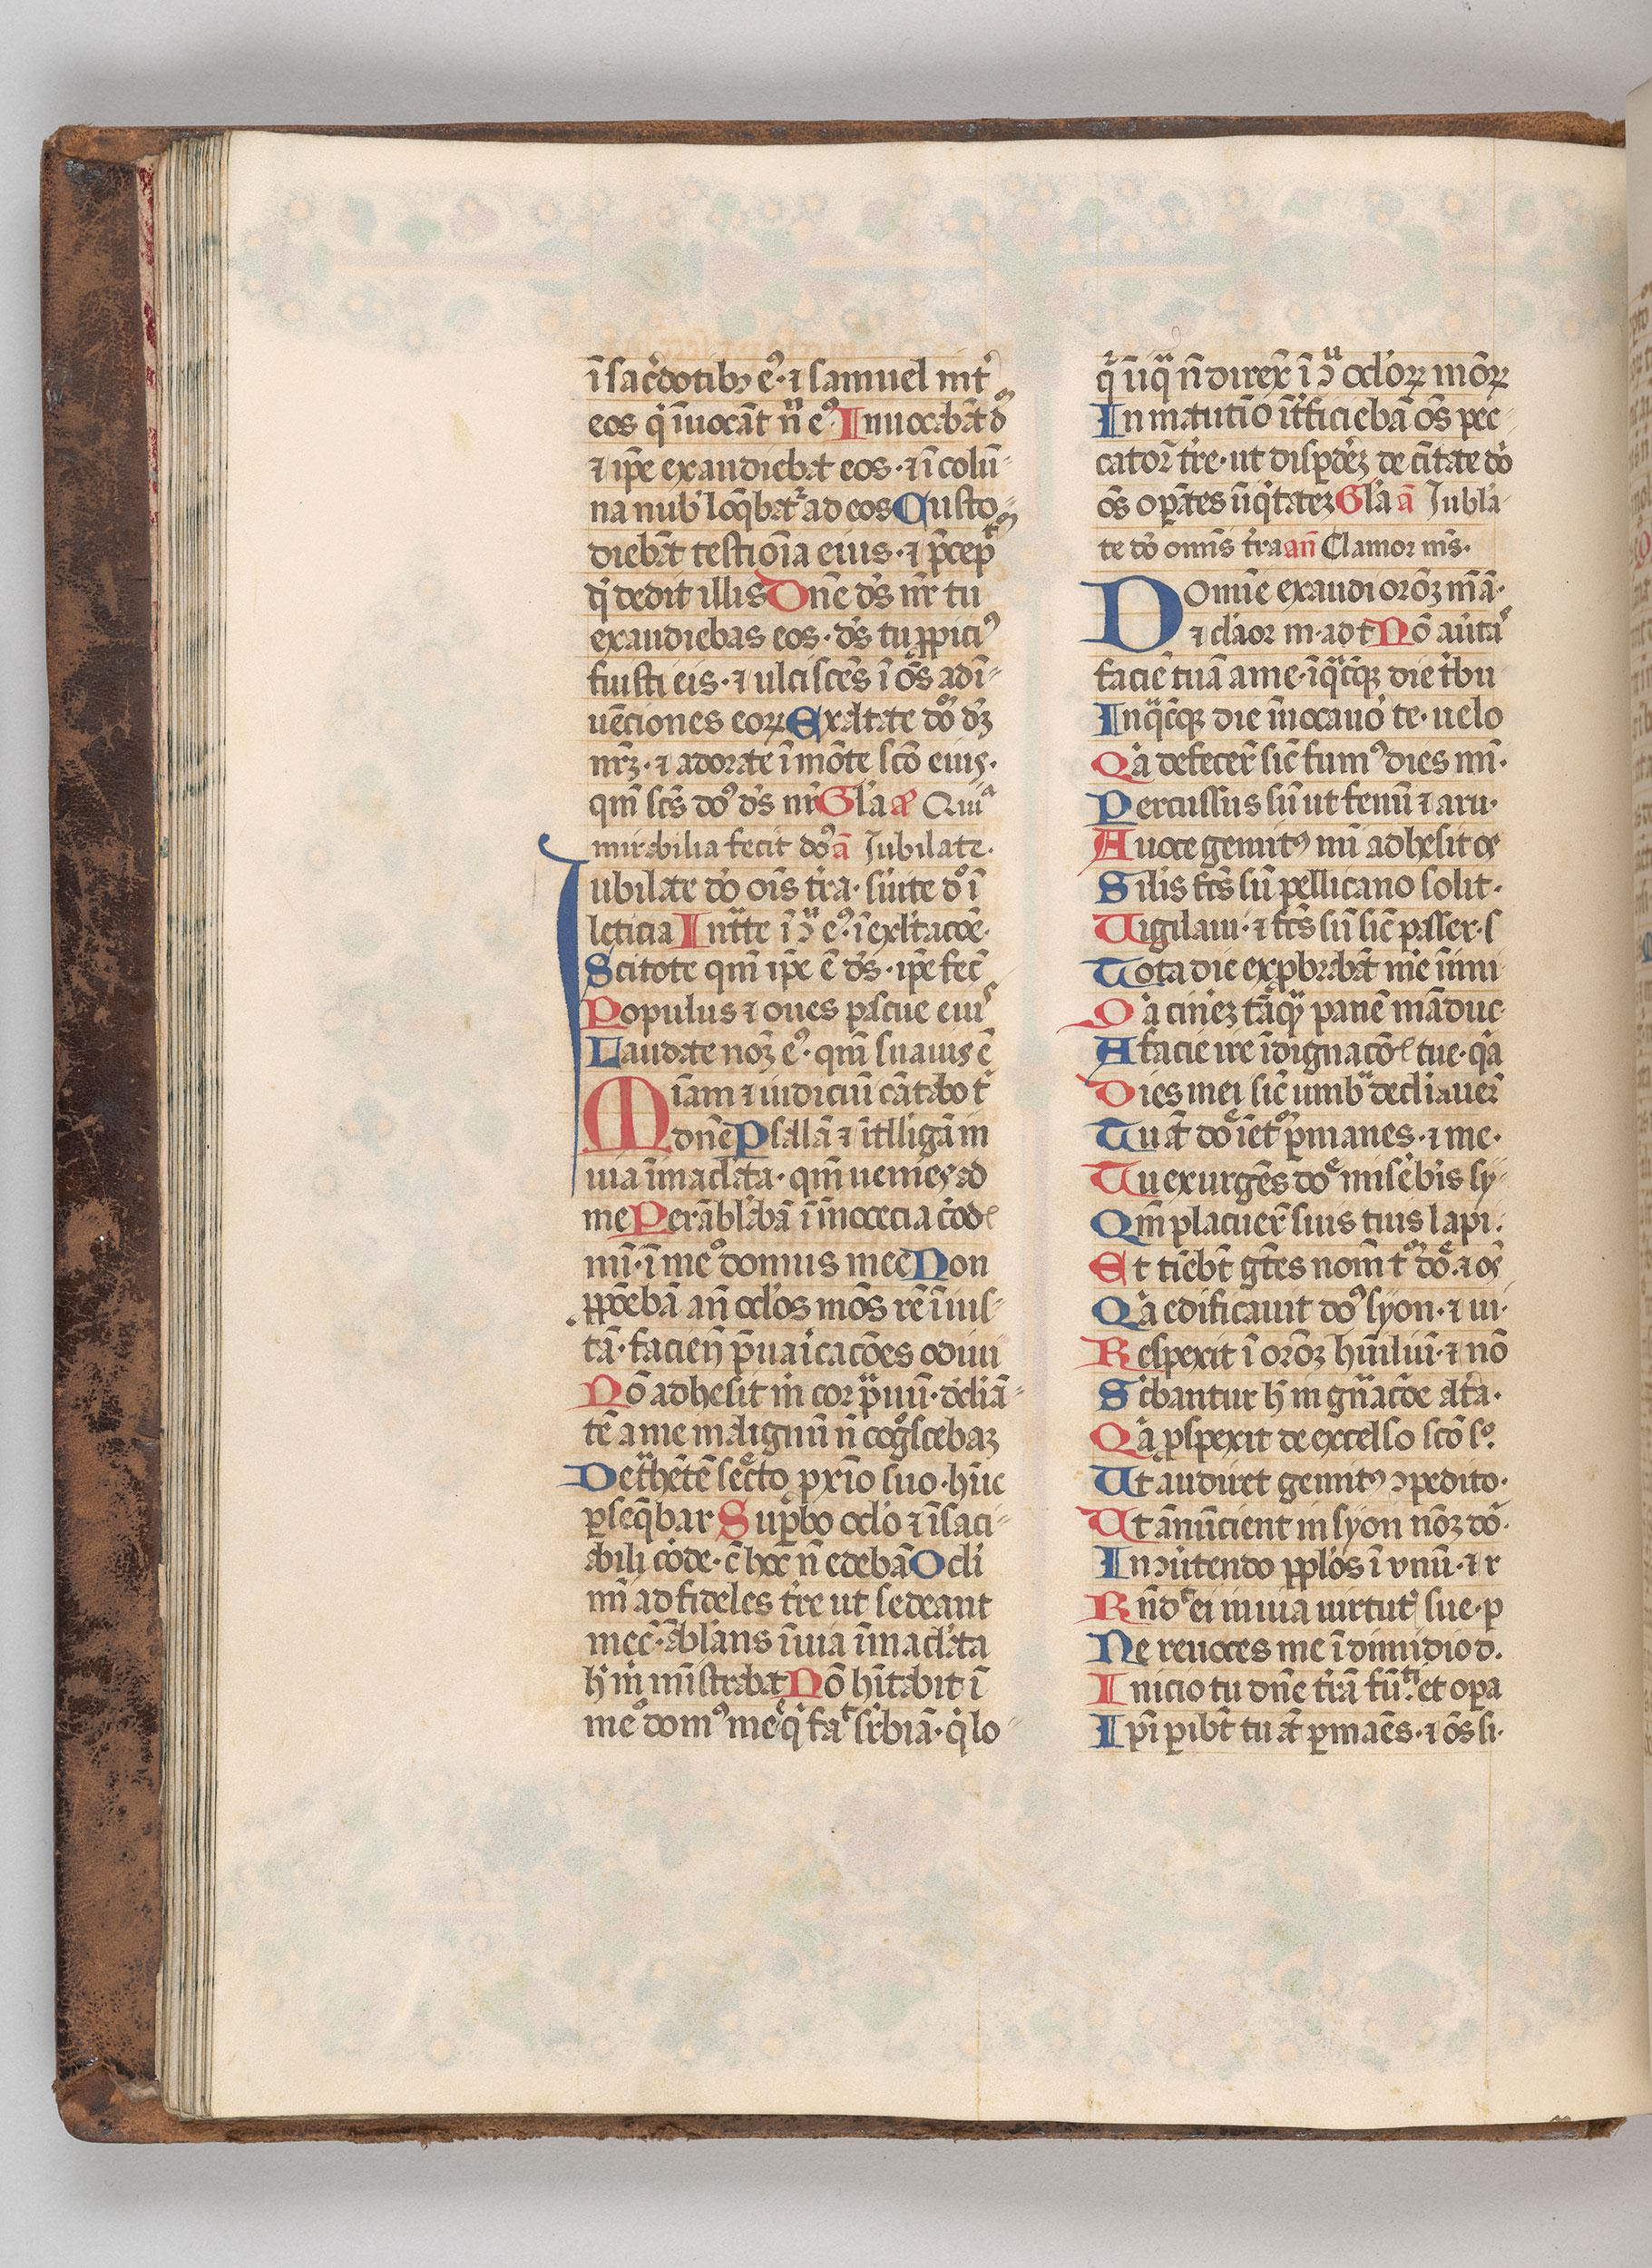 ī sac̉dotibꝫ eꝰ· ⁊ samuel int̉
eos q̇ īuocāt nͫ eꝰ· Inuocabāt dͦ
⁊ ip̄e exaudiebat eos· ⁊ ī colū
na nub̉ loq̄bat̉ ad eos Custo
diebāt testīoīa eius· ⁊ p̄cep
q̇ dedit illis Dn̄e ds̄ nr̄ tu
exaudiebas eos· ds̄ tu ꝓpiciꝰ
fuisti eis· ⁊ ulciscēs ī oēs adī
uēciones eoꝝ Exaltate doͫ dꝫ
nr̄ꝫ· ⁊ adorate ī mōte scō eius·
qm̄ scs̄ doꝰ ds̄ nr̄ Gl̉a Quiᵃ
mirabilia fecit doꝰ ā Iubilate·
Iubilate dō ois̄ tr̉a· s̉uite dō ī
leticia Int̉te ī ɔͧ eꝰ· ī exl̉tacōe·
Scitote qm̄ ip̄e ē ds̄· ip̄e fec̄
Populus ⁊ oues pascue eiuˢ
Laudate noꝫ eꝰ· qm̄ suauis ē
Miam ⁊ iudiciū cātabo t̉
dn̄e Psallā ⁊ ītlligā in
uia īmacl̉ata· qm̄ uenies ad
me Perābl̉abā ī īnocēcia c̉od
mī· ī meͦ domus mee Non
ꝓpōebā an̄ ocl̉os mōs rē īius
tā· facien̄ p̄uaicacōes odiui
Nō adhesit m̉ cor p̄uū· declīā
tē a me malignū n̄ cogͦscebaꝫ
Detͬhētē secͤto ꝓxīo suo· hūc
ꝑseq̄bar Suꝑbo ocl̉o ⁊ īsaci
abili corde· c̄ hoc n̄ edebā Ocli
mī ad fideles tr̉e ut sedeant
mec̄· ābl̉ans ī uia īmacl̉ata
h̉ m̉ mīstrabat Nō hītabit ī
meͦ domꝰ meͤ q̇ faᵗ suꝑbiā· q̇ lo
q̇ īiqͣ n̄ direx̄ ī ɔͧ ocl̉oꝝ mōꝝ
In matutīo īt̉ficiebā os̄ pec
cator̄ tr̉e· ut disꝑdeꝫ de cītate dō
os̄ oꝑātes īiq̇tateꝫ Gl̉a ā Iubla
te dō omīs tr̉a an̄ Clamor mīs·
Domīe exaudi oroꝫ mēā·
⁊ cl̉aor m· ad t Nō au̇taˢ
faciē tuā a me· ī qͣcq̄ꝫ die tͥbu
In qͣcq̄ꝫ die īuocauō te· uelo
Qͥa defecer̄ sic̄ fumꝰ dies mī·
Percussus sū ut fenū ⁊ aru·
A uoce gemitꝰ mī adhesit os
Silis fcs̄ sū pellicano solit·
Uigilaui· ⁊ fcs̄ sū sic̄ passer· s
Tota die exꝓbrabāt mͥ īimi
Qͥa cīeꝫ tāqͣ panē māduc
A facie ire īdignacōˢ tue· qͥa
Dies mei sic̄ umbͣ declīauer̄
Tu āt doͤ īetͦ ꝑmanes· ⁊ me·
Tu exurgēs doͤ mis̉ebis sy
Qm̄ placuer̄ s̉uis tuis lapi·
Et tīebt̄ gētes nom̄ tͫ doͤ· ⁊ os̄
Qͥa edificauit doꝰ syon· ⁊ ui·
Respexit ī oroꝫ humiliū· ⁊ nō
Scͥbantur h̉ in gn̄acōe alt̉a·
Qͥa ꝓspexit de excelso scō sͦ·
Ut audiret gemitꝰ ɔpedito·
Ut ānūcient in syon noꝫ dō·
In ɔuītendo pplo̓s ī vnū· ⁊ r
Rn̄dᵗ ei in uia uirtutˢ sue· p
Ne reuoces me ī dimidio d·
Inicio tu dn̄e tr̉ā fū·ᵗⁱ et oꝑa
Ip̄i ꝑibt̄ tu āt ꝑmaēs· ⁊ ōs si·